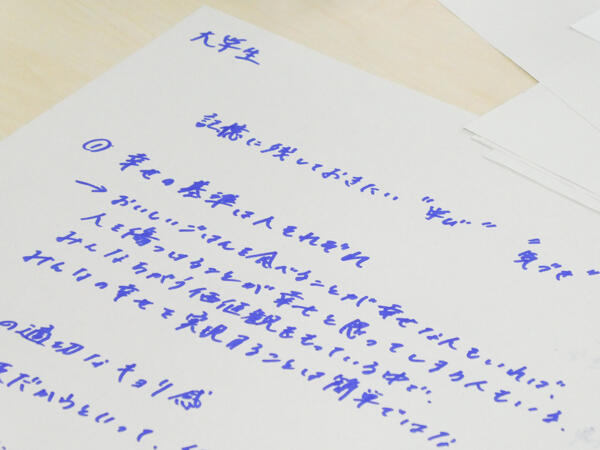 大学生
記憶に残しておきたい "学び" "気づき"
① 幸せの基準は人それぞれ
→ おいしいごはんを食べることが幸せな人もいれば、
人を傷つけることが幸せと思ってしまう人もいる。
みんなちがう価値観をもっている中で、
みんなの幸せを実現することは簡単ではな
の適切なキョリ感
だからといって、